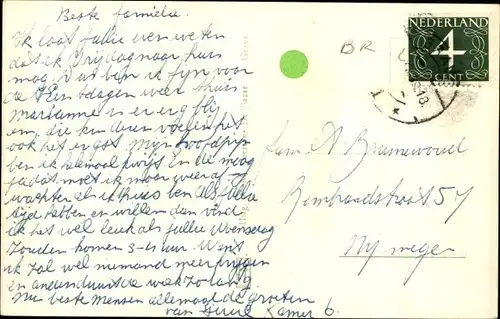 Beste familie.
Ik laat jullie even weten
dat ik Vrijdag naar huis
mag. Dus ben ik fijn voor
de Pinksterdagen weer thuis
Marianne is er erg blij
om, die kinderen voelen het
ook het ergst. Mijn hoofdpijn
ben ik helemaal kwijt en de maag
ja dat moet ik maar weer af
wachten als ik thuis ben als jullie
tijd hebben en willen dan vind
ik het wel leuk als jullie Woensdag
zouden komen 3-4 uur. Want
ik zal wel niemand meer krijgen
en anders duurt de week zo lang.
Nu beste mensen allemaal de groeten
van Kamer 6.
BR
NEDERLAND
4
CENT
Fam. A. Brunewoud
Rembrandtstraat 57
Nijmegen